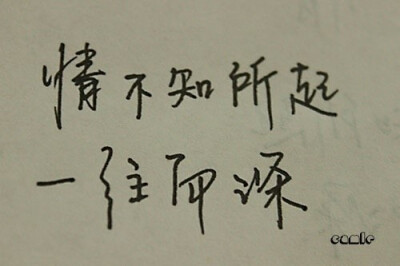 情不知所起
一往而深
eamle